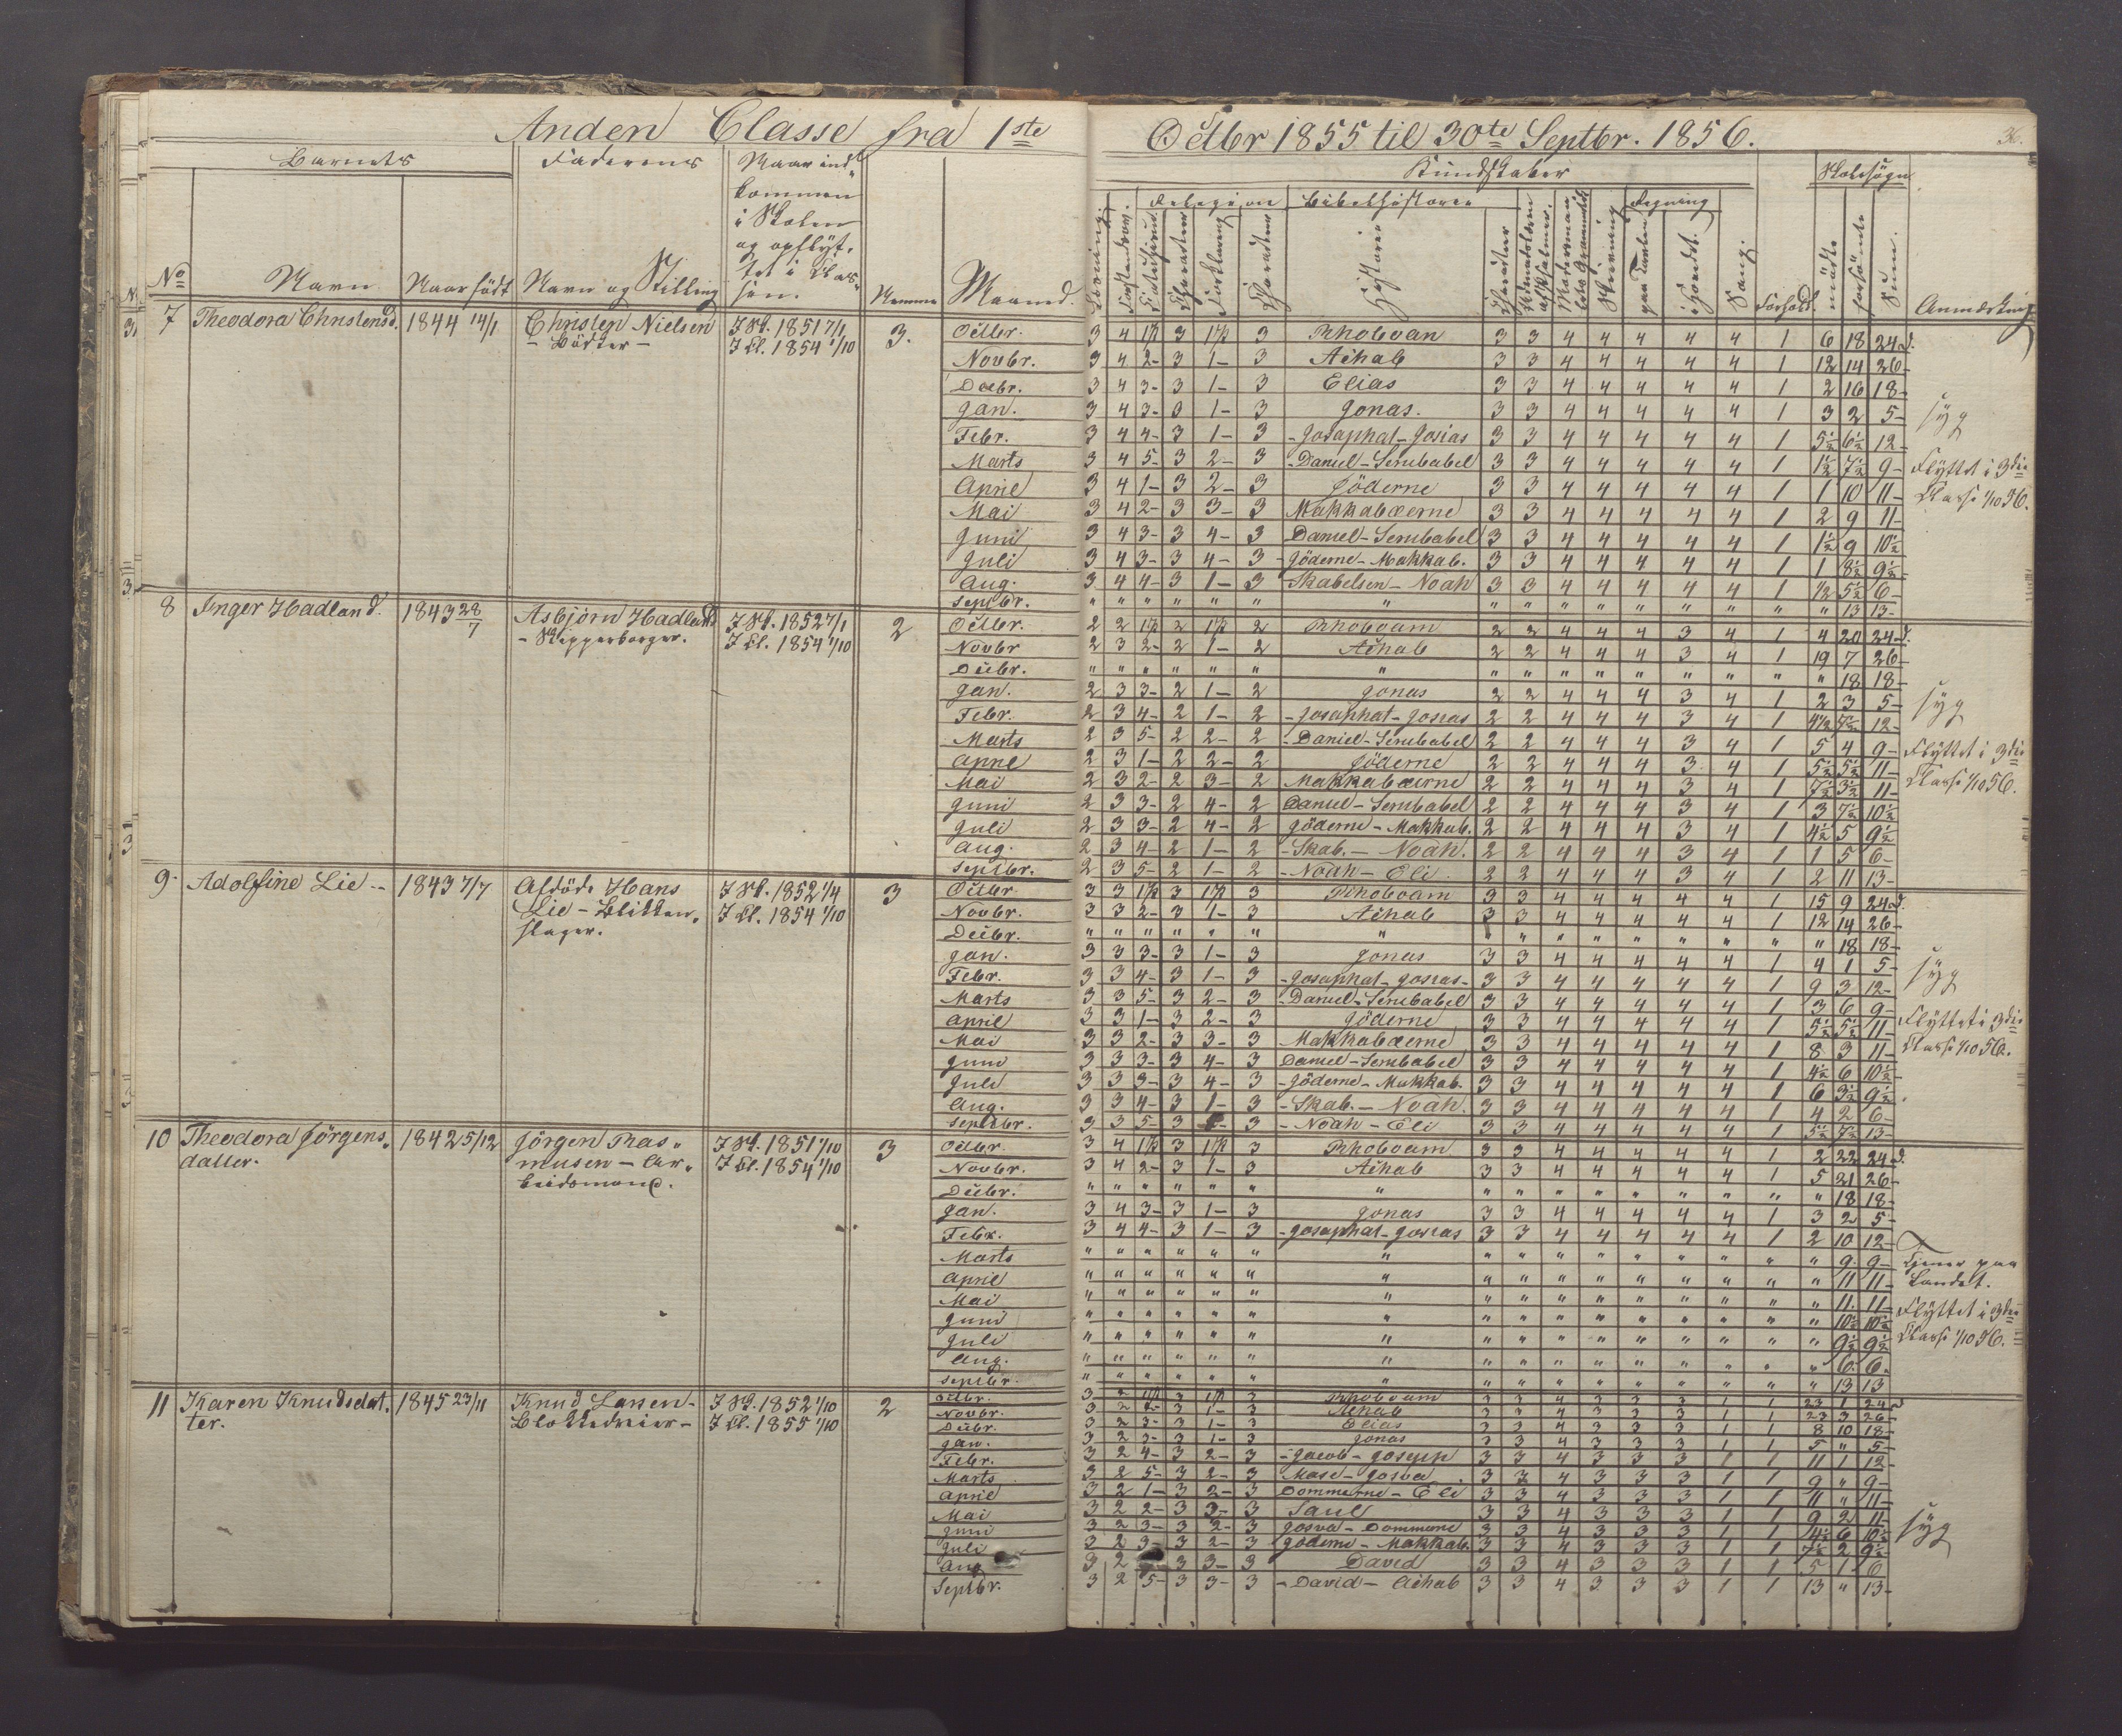 Anden Classe fra 1ste Octbr 1855 til 30te Septbr. 1856.
36.
Barnets Faderens Naar ind-
kommen
i Skolen
og opflyt-
tet i Clas-
sen.
No Navn Naar født Navn og Stilling Numer Maaned.
Kundskaber Skolesøgn
Religion Bibelhistorie Regning
Historie Sang. Forhold. mødte forsømte Sum. Anmærkning
7 Theodora Christensd. 1844 14/1 Christen Nielsen J Sk. 1851 7/1 3.
- Bödker - J Cl. 1854 1/10
Octbr. 3 4 1ste 3 1ste 3 Rhoboan 3 3 4 4 4 4 4 1 6 18 24 d.
Novbr. 3 4 2- 3 1- 3 Achab 3 3 4 4 4 4 4 1 12 14 26-
Decbr. 3 4 3- 3 1- 3 Elias 3 3 4 4 4 4 4 1 2 16 18-
Jan. 3 4 3- 3 1- 3 Jonas. 3 3 4 4 4 4 4 1 3 2 5- syg
Febr. 3 4 4- 3 1- 3 - Josaphat - Josias 3 3 4 4 4 4 4 1 5½ 6½ 12-
Marts 3 4 5- 3 2- 3 - Daniel - Serubabel 3 3 4 4 4 4 4 1 1½ 7½ 9- Flyttet i 3die
April 3 4 1- 3 2- 3 Jöderne 3 3 4 4 4 4 4 1 1 10 11- Classe 1/10 56.
Mai 3 4 2- 3 3- 3 Makkabæerne 3 3 4 4 4 4 4 1 2 9 11-
Juni 3 4 3- 3 4- 3 Daniel - Serubabel 3 3 4 4 4 4 4 1 1½ 9 10½
Juli 3 4 3- 3 4- 3 - Jöderne - Makkab. 3 3 4 4 4 4 4 1 1 8½ 9½
Aug. 3 4 4- 3 1- 3 - Skabelsen - Noah 3 3 4 4 4 4 4 1 ½ 5½ 6-
Septbr. " " " " " " " " " " " " " " " " 13 13-
8 Inger Hadland. 1843 28/7 Asbjörn Hadland J Sk. 1852 7/1 2
- Skipperborger. J Cl. 1854 1/10
Octbr. 2 2 1ste 2 1ste 2 Rhoboam 2 2 4 4 4 3 4 1 4 20 24 d.
Novbr 2 3 2- 2 1- 2 Achab 2 2 4 4 4 3 4 1 19 7 26-
Decbr. " " " " " " " " " " " " " " " " 18 18-
Jan. 2 3 3- 2 1- 2 Jonas 2 2 4 4 4 3 4 1 2 3 5- syg
Febr. 2 3 4- 2 1- 2 - Josaphat - Josias 2 2 4 4 4 3 4 1 4½ 7½ 12-
Marts 2 3 5- 2 2- 2 - Daniel - Serubabel 2 2 4 4 4 3 4 1 5 4 9- Flyttet i 3die
April 2 3 1- 2 2- 2 Jöderne 2 2 4 4 4 3 4 1 5½ 5½ 11- Classe 1/10 56.
Mai 2 3 2- 2 3- 2 Makkabæerne 2 2 4 4 4 3 4 1 7½ 3½ 11-
Juni 2 3 3- 2 4- 2 Daniel - Serubabel 2 2 4 4 4 3 4 1 3 7½ 10½
Juli 2 3 3- 2 4- 2 Jöderne - Makkab. 2 2 4 4 4 3 4 1 4½ 5 9½
Aug. 2 3 4- 2 1- 2 - Skab. - Noah. 2 2 4 4 4 3 4 1 1 5 6-
Septbr. 2 3 5- 2 1- 2 - Noah - Eli 2 2 4 4 4 3 4 1 2 11 13-
9. Adolfine Lie - 1843 7/7 Afdöde Hans J Sk. 1852 1/4 3
Lie - Blikken- J Cl. 1854 1/10
slager.
Octbr. 3 3 1ste 3 1ste 3 Rhoboam 3 3 4 4 4 4 4 1 15 9 24 d.
Novbr. 3 3 2- 3 1- 3 Achab 3 3 4 4 4 4 4 1 12 14 26-
Decbr. " " " " " " " " " " " " " " " " 18 18-
Jan. 3 3 3- 3 1- 3 Jonas 3 3 4 4 4 4 4 1 4 1 5- syg
Febr. 3 3 4- 3 1- 3 - Josaphat - Josias - 3 3 4 4 4 4 4 1 9 3 12-
Marts 3 3 5- 3 2- 3 - Daniel - Serubabel 3 3 4 4 4 4 4 1 3 6 9-
April 3 3 1- 3 2- 3 Jöderne 3 3 4 4 4 4 4 1 5½ 5½ 11- Flyttet i 3die
Mai 3 3 2- 3 3- 3 Makkabæerne 3 3 4 4 4 4 4 1 8 3 11- Classe 1/10 56.
Juni 3 3 3- 3 4- 3 Daniel - Serubabel 3 3 4 4 4 4 4 1 4½ 6 10½
Juli 3 3 3- 3 4- 3 - Jöderne - Makkab. 3 3 4 4 4 4 4 1 6 3½ 9½
Aug. 3 3 4- 3 1- 3 - Skab. - Noah. 3 3 4 4 4 4 4 1 4 2 6-
Septbr. 3 3 5- 3 - 3 - Noah - Eli 3 3 4 4 4 4 4 1 5½ 7½ 13-
10 Theodora Jörgens- 1842 5/12 Jörgen Ras- J Sk. 1851 1/10 3
datter. musen - Ar- J Cl. 1854 1/10
beidsmand.
Octbr. 3 4 1ste 3 1ste 3 Rhoboam 3 3 4 4 4 4 4 1 2 22 24 d.
Novbr. 3 4 2- 3 1- 3 Achab 3 3 4 4 4 4 4 1 5 21 26-
Decbr. " " " " " " " " " " " " " " " " 18 18-
Jan. 3 4 3- 3 1- 3 Jonas 3 3 4 4 4 4 4 1 3 2 5-
Febr. 3 4 4- 3 1- 3 - Josaphat - Josias 3 3 4 4 4 4 4 1 2 10 12-
Marts " " " " " " " " " " " " " " " " 9 9- Tjener paa
April " " " " " " " " " " " " " " " " 11 11- Landet.
Mai " " " " " " " " " " " " " " " " 11 11- Flyttet i 3die
Juni " " " " " " " " " " " " " " " " 10½ 10½ Classe 1/10 56.
Juli " " " " " " " " " " " " " " " " 9½ 9½
Aug. " " " " " " " " " " " " " " " " 6. 6.
Septbr. " " " " " " " " " " " " " " " " 13 13
11 Karen Knudsdat- 1845 23/11 Knud Larsen - J Sk. 1852 1/10 2
ter. Blokkedreier - J Cl. 1855 1/10
Octbr. 3 2 1ste 3 1ste 3 Rhoboam 3 3 4 3 3 3 1 1 23 1 24 d
Novbr. 3 2 2- 3 1- 3 Achab 3 3 4 3 3 3 1 1 23 3 26-
Decbr. 3 2 3- 3 1- 3 Elias 3 3 4 3 3 3 1 1 8 10 18-
Jan. 3 2 3- 3 1- 3 Jonas 3 3 4 3 3 3 1 1 5 " 5-
Febr. 3 2 4- 3 2- 3 - Jacob - Joseph 3 3 4 3 3 3 1 1 11 1 12-
Marts 3 2 5- 3 2- 3 Mose - Josva 3 3 4 3 3 3 1 1 9 " 9-
April 3 2 1- 3 2- 3 Dommerne - Eli 3 3 4 3 3 3 1 1 11 " 11-
Mai 3 2 2- 3 3- 3 Saul 3 3 4 3 3 3 1 1 9 2 11-
Juni 3 2 3- 3 2- 3 Josva - Dommerne 3 3 4 3 3 3 1 1 4½ 6 10½ syg
Juli 3 2 3- 3 2- 3 Jöderne - Makkab. 3 3 4 3 3 3 1 1 7½ 2 9½
Aug 3 2 3 3- 3 David 3 3 4 3 3 3 1 1 5 1 6
Septbr. 3 2 5- 3 3- 3 - David - Achab 3 3 4 3 3 3 1 1 13 " 13-